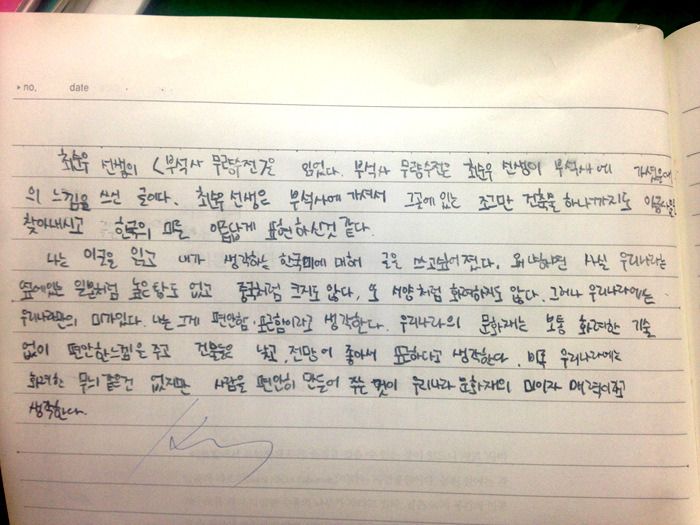 ▸no. date . .
최순우 선생의 <부석사 무량수전>을 읽었다. 부석사 무량수전은 최순우 선생이 부석사에 가셨을때
의 느낌을 쓰신 글이다. 최순우 선생은 부석사에 가셔서 그곳에 있는 조그만 건축물 하나까지도
찾아내시고 한국의 미를 아름답게 표현하신것 같다.
나는 이글을 읽고 내가 생각하는 한국미에 대해 글을 쓰고싶어졌다. 왜냐하면 사실 우리나라는
옆에있는 일본처럼 높은탑도 없고 중국처럼 크지도 않다. 또 서양처럼 화려하지도 않다. 그러나 우리나라에는
우리나라만의 미가있다. 나는 그게 편안함, 포근함이라고 생각한다. 우리나라의 문화재는 보통 화려한 기술
없이 편안한느낌을 주고 건축물은 낮고, 전망이 좋아서 포근하다고 생각한다. 비록 우리나라에는
화려한 무늬 같은건 없지만 사람을 편안히 만들어 주는 멋이 우리나라 문화재의 미이자 매력이라고
생각한다.